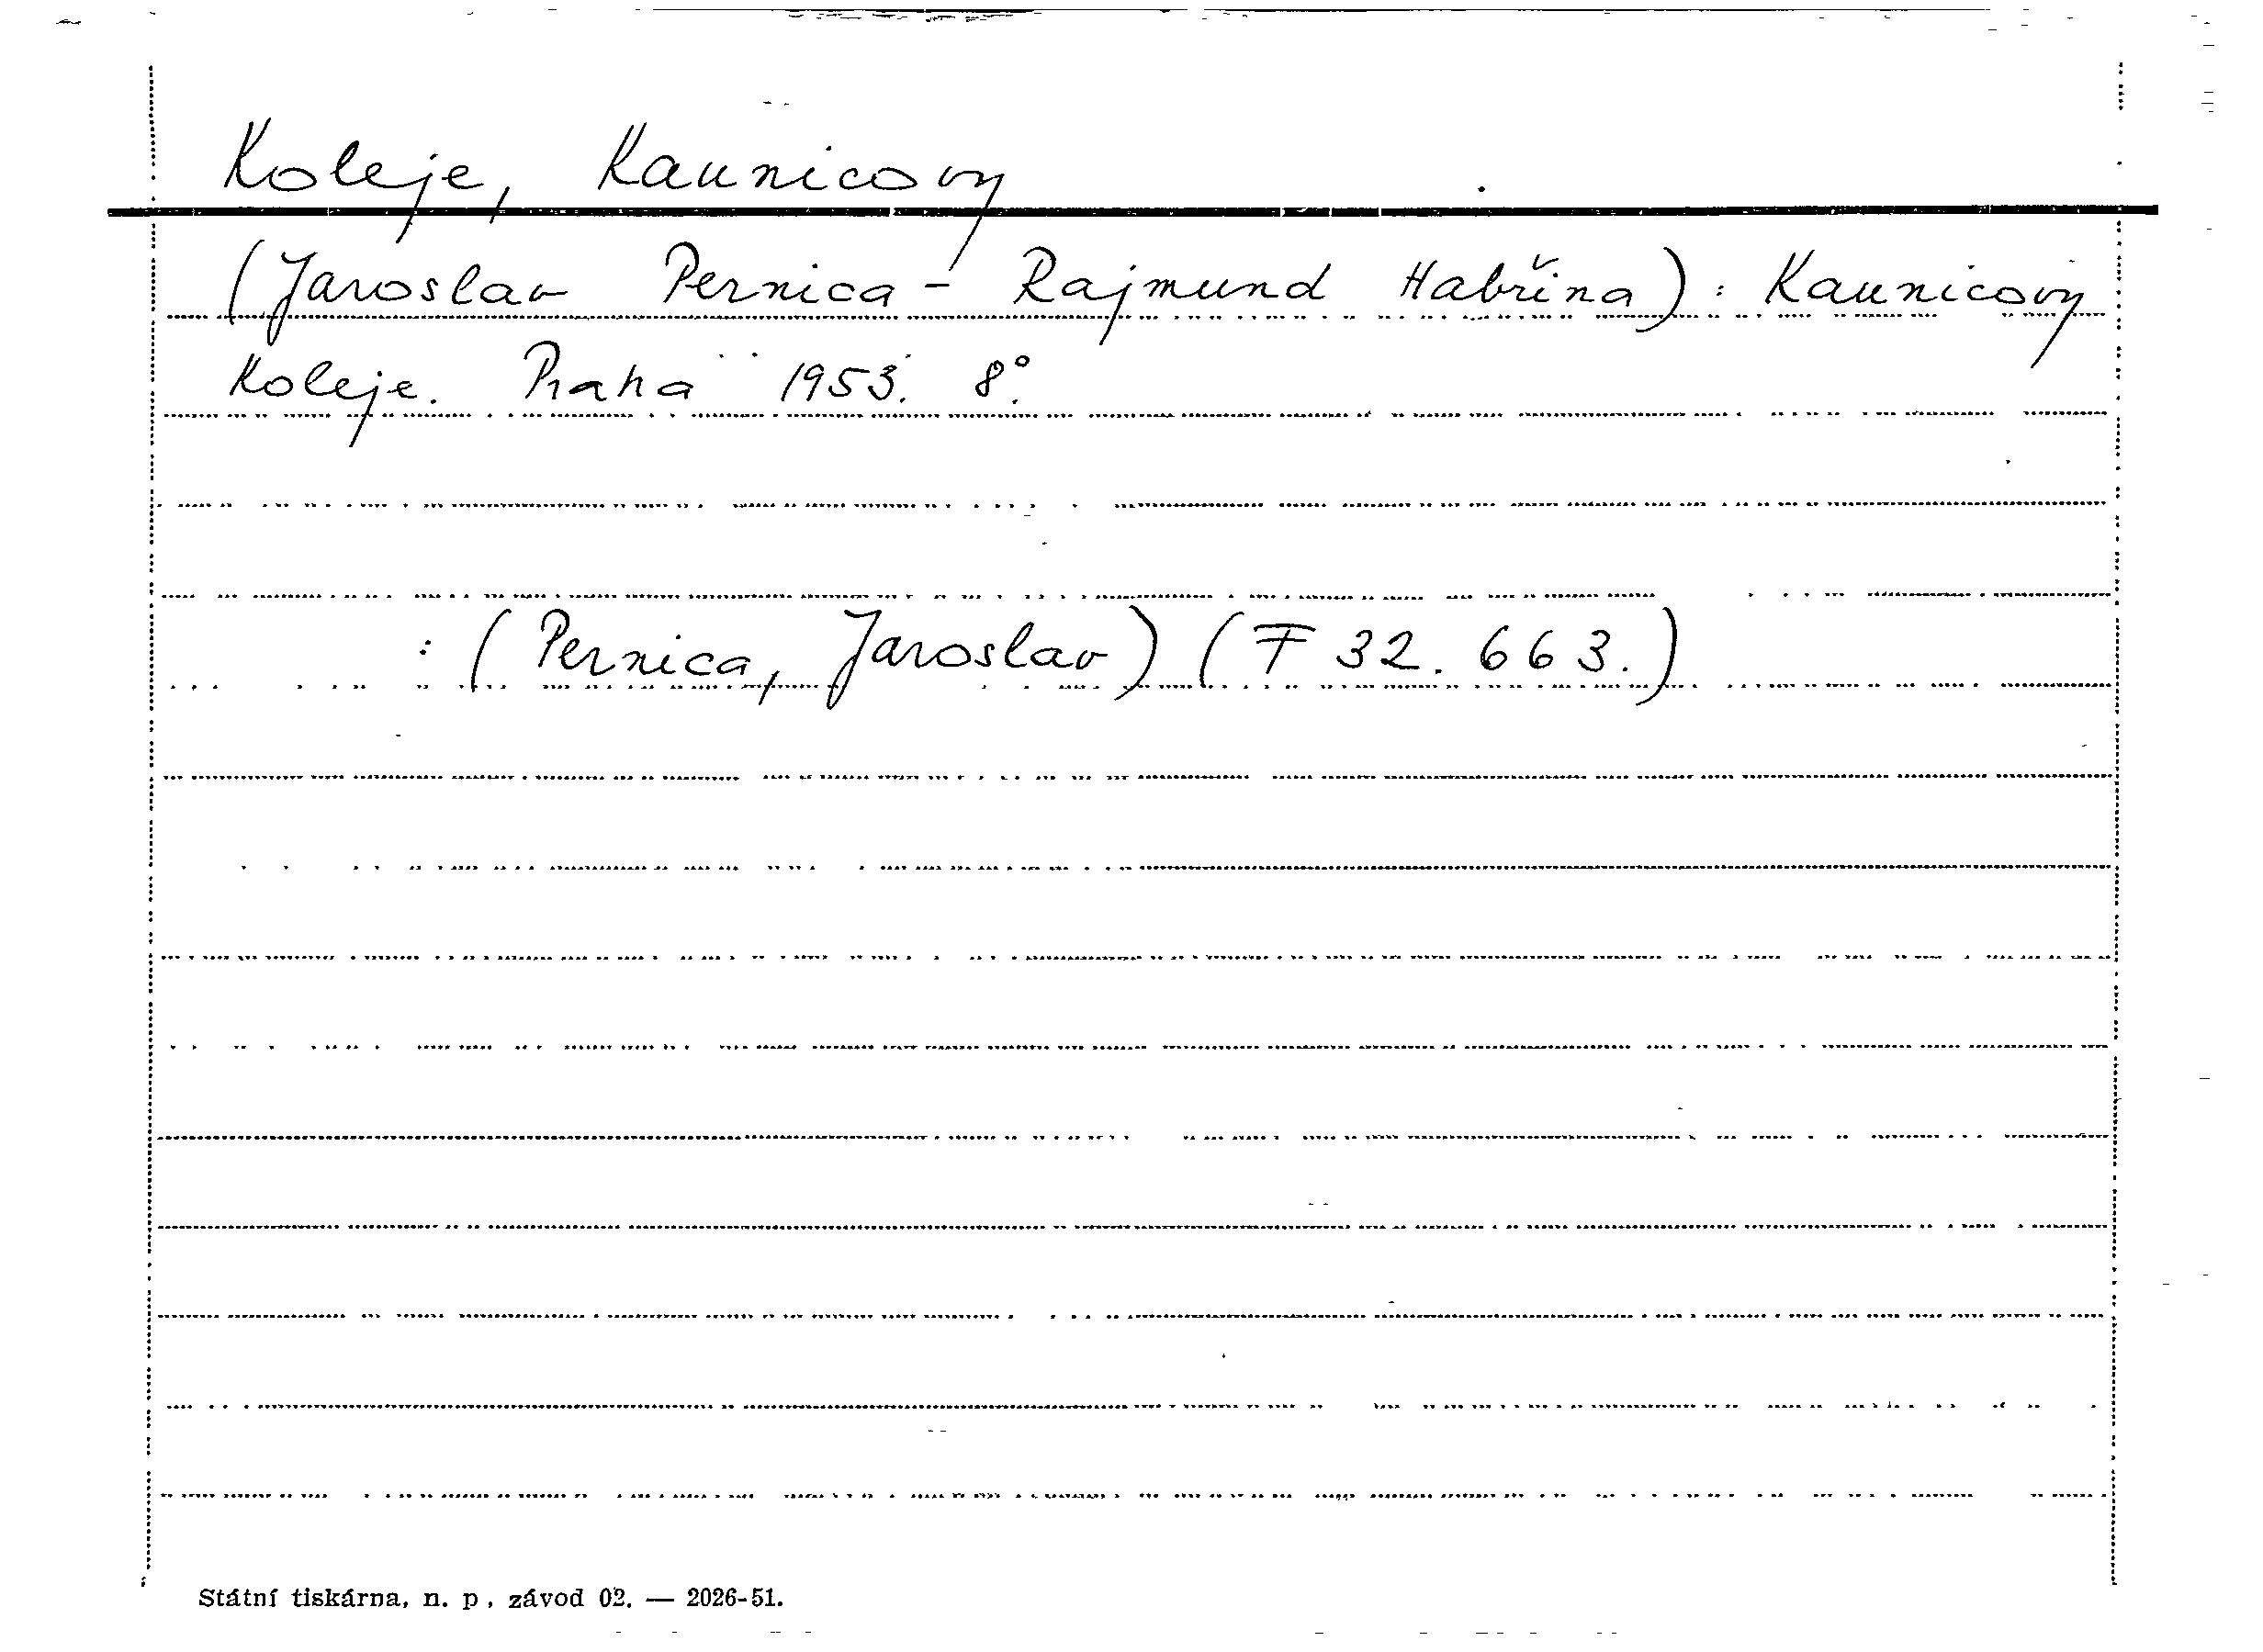 Koleje, Kaunicovy
(Jaroslav Pernica - Rajmund Habřina): Kaunicovy
Koleje. Praha 1953. 8°.
: (Pernica, Jaroslav) (F 32. 663.)
Státní tiskárna, n. p., závod 02. — 2026-51.